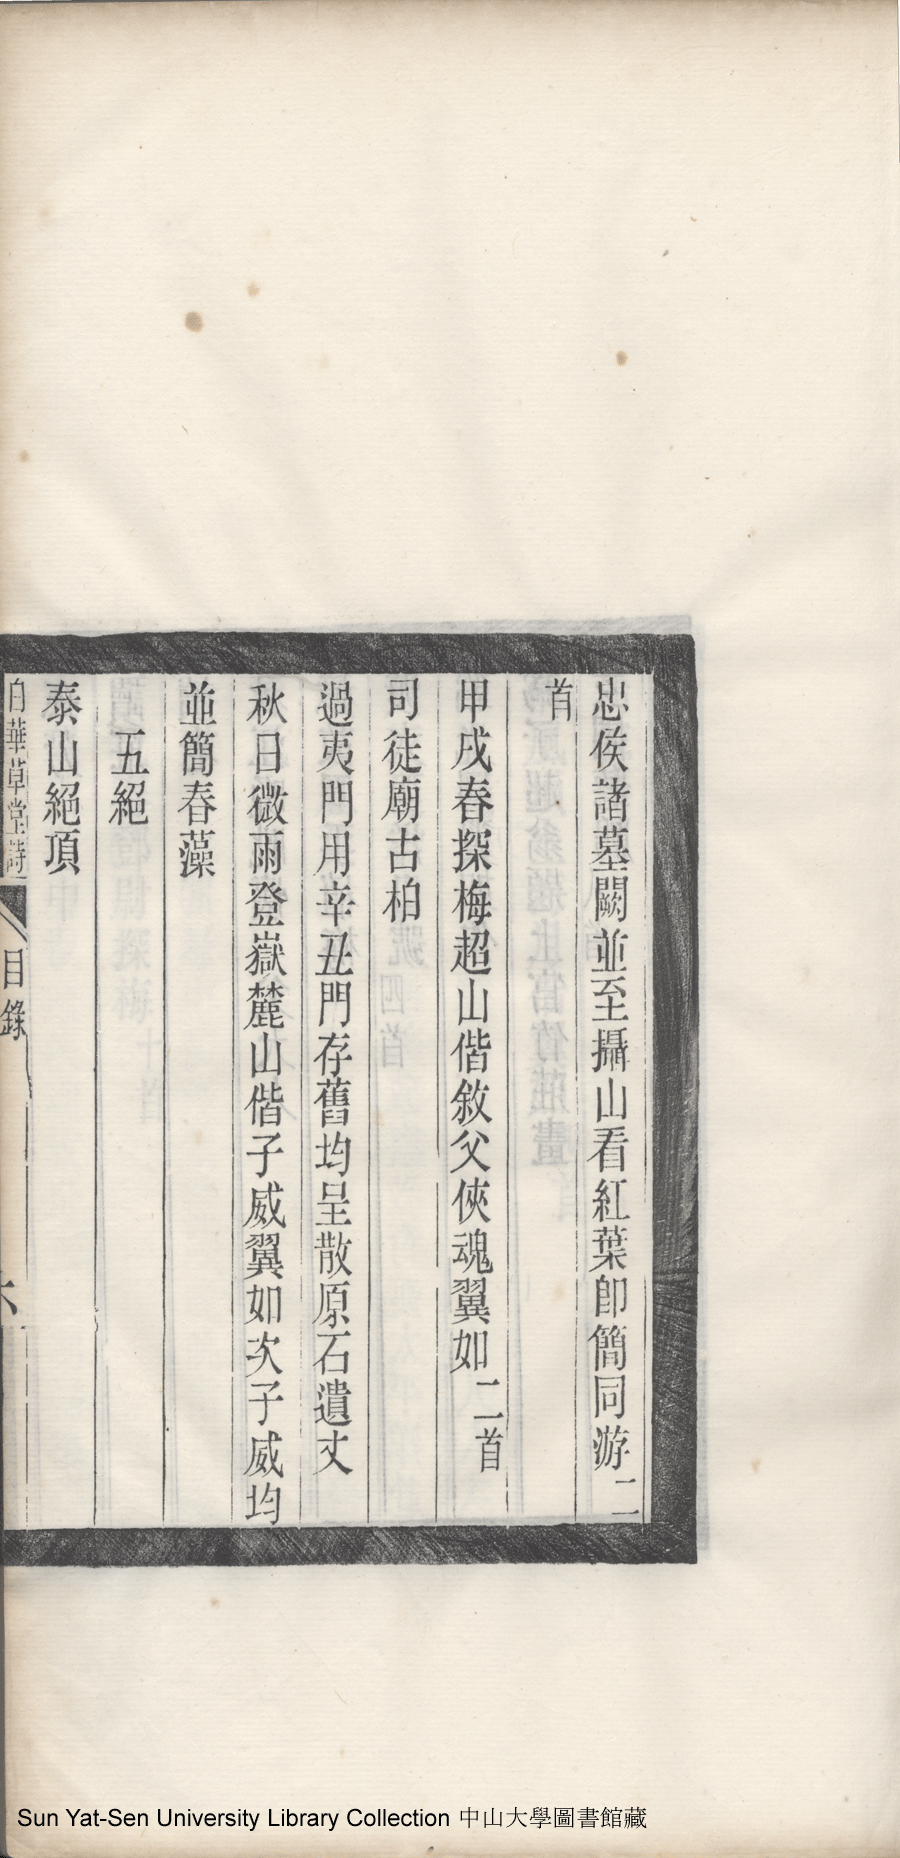 忠侯諸墓闕並至攝山看紅葉卽簡同游二
首
甲戌春探梅超山偕敘父俠魂翼如二首
司徒廟古柏
過夷門用辛丑門存舊均呈散原石遺丈
秋日微雨登嶽麓山偕子威翼如次子威均
並簡春藻
五絕
泰山絕頂
白華草堂詩
目錄
Sun Yat-Sen University Library Collection 中山大學圖書館藏